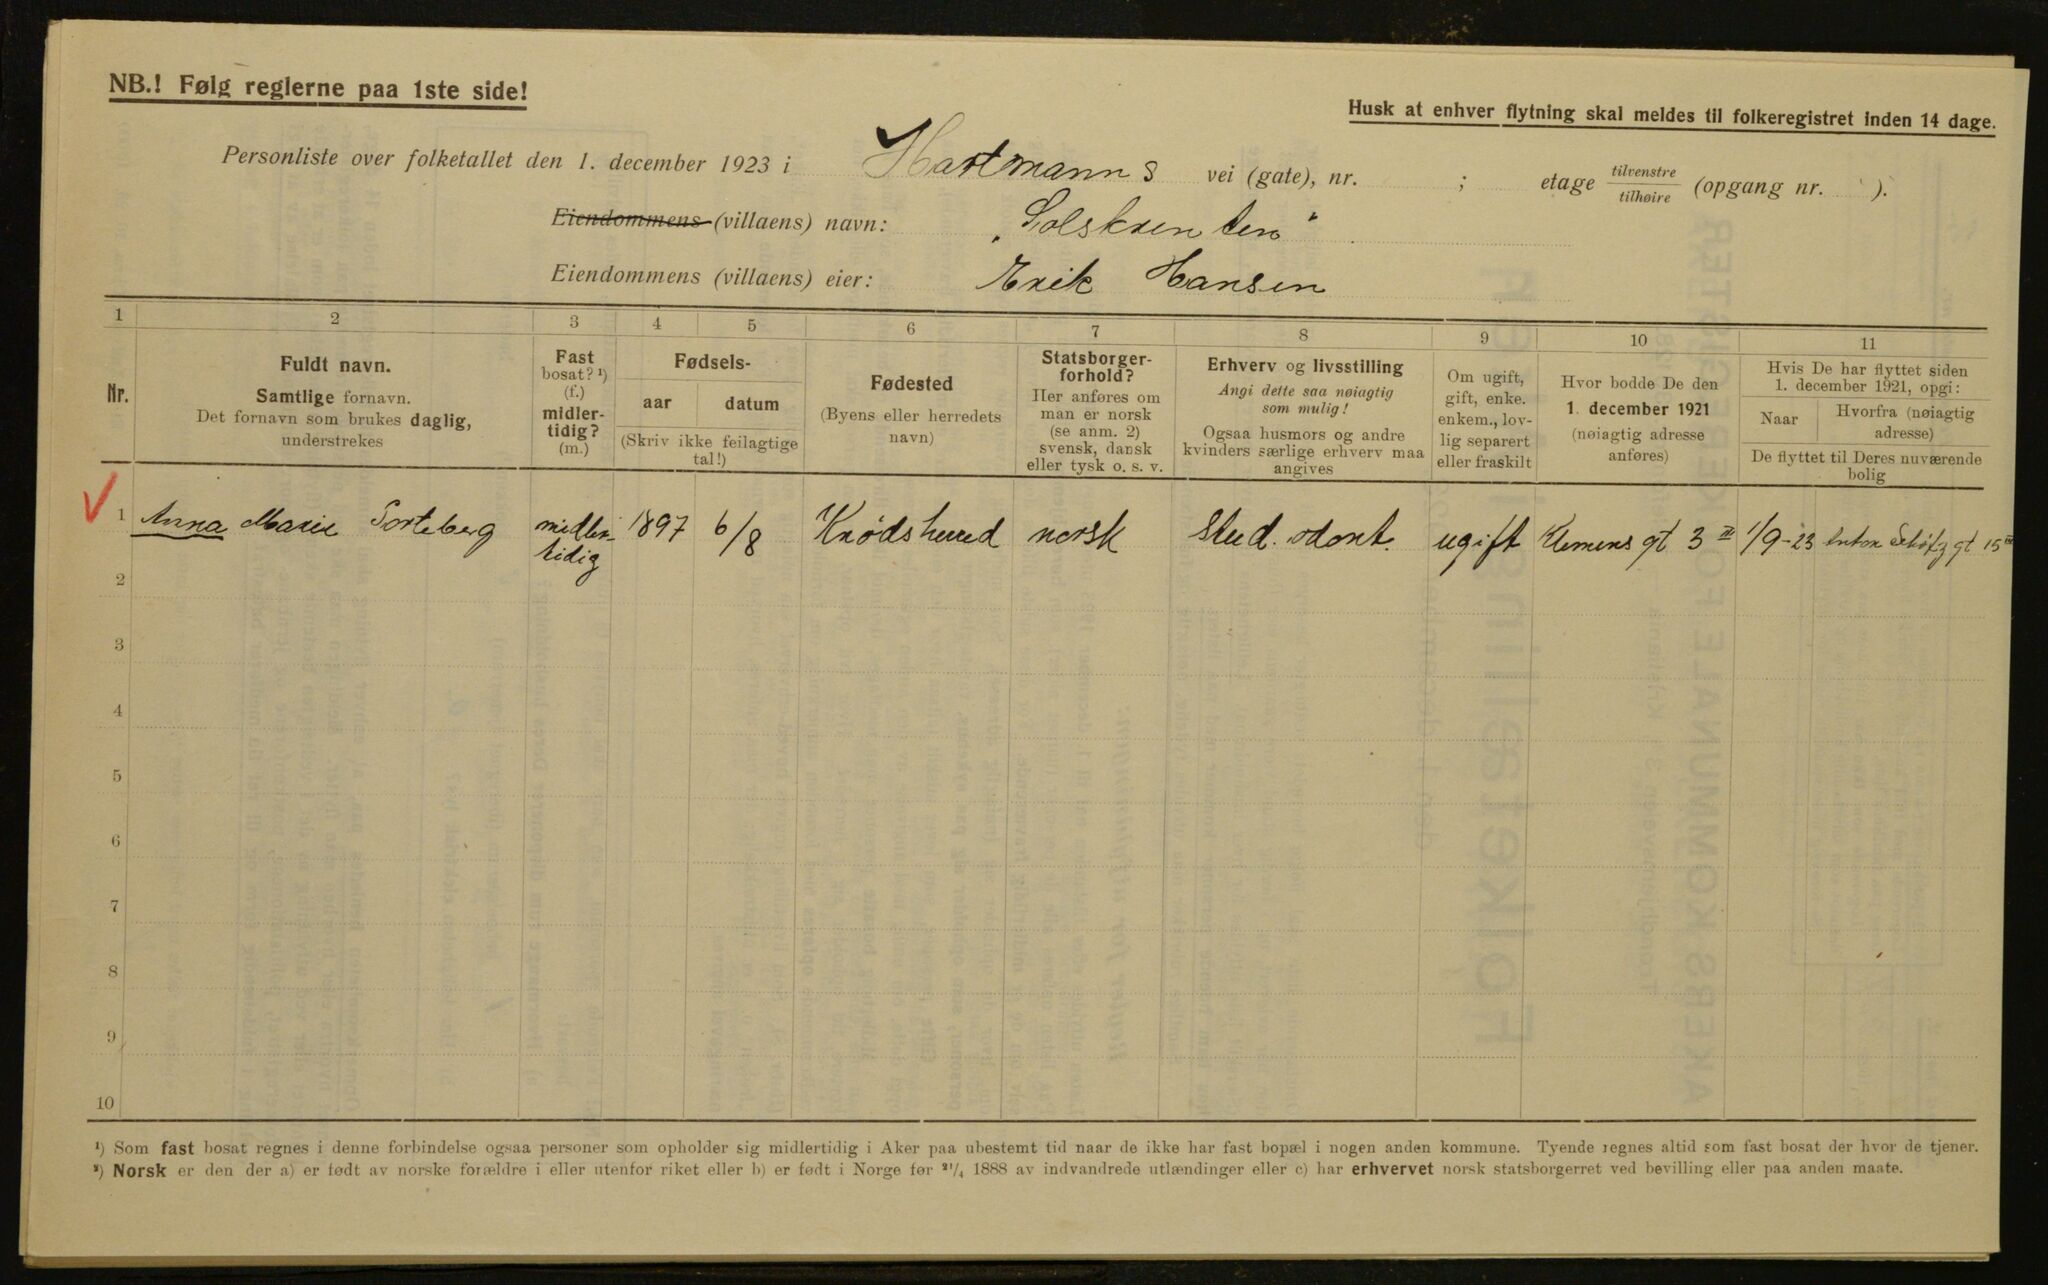 NB.! Følg reglerne paa 1ste side!
Husk at enhver flytning skal meldes til folkeregistret inden 14 dage.
Personliste over folketallet den 1. december 1923 i Hartmanns vei (gate), nr. ; etage tilvenstre tilhøire (opgang nr. ).
Eiendommens (villaens) navn: „Solskrenten"
Eiendommens (villaens) eier: Erik Hansen
1 2 3 4 5 6 7 8 9 10 11
Nr.
Fuldt navn.
Samtlige fornavn.
Det fornavn som brukes daglig,
understrekes
Fast
bosat? ¹)
(f.)
midler-
tidig?
(m.)
Fødsels-
aar datum
(Skriv ikke feilagtige
tal!)
Fødested
(Byens eller herredets
navn)
Statsborger-
forhold?
Her anføres om
man er norsk
(se anm. 2)
svensk, dansk
eller tysk o. s. v.
Erhverv og livsstilling
Angi dette saa nøiagtig
som mulig!
Ogsaa husmors og andre
kvinders særlige erhverv maa
angives
Om ugift,
gift, enke.
enkem., lov-
lig separert
eller fraskilt
Hvor bodde De den
1. december 1921
(nøiagtig adresse
anføres)
Hvis De har flyttet siden
1. december 1921, opgi:
Naar Hvorfra (nøiagtig
adresse)
De flyttet til Deres nuværende
bolig
1 Anna Marie Sorteberg midler- 1897 6/8 Krødsherred norsk stud. odont. ugift Klemens gt 3 III 1/9-23 Anton Schøtz gt 15 III
tidig
2
3
4
5
6
7
8
9
10
¹) Som fast bosat regnes i denne forbindelse ogsaa personer som opholder sig midlertidig i Aker paa ubestemt tid naar de ikke har fast bopæl i nogen anden kommune. Tyende regnes altid som fast bosat der hvor de tjener.
²) Norsk er den der a) er født av norske forældre i eller utenfor riket eller b) er født i Norge før ²¹/₄ 1888 av indvandrede utlændinger eller c) har erhvervet norsk statsborgerret ved bevilling eller paa anden maate.